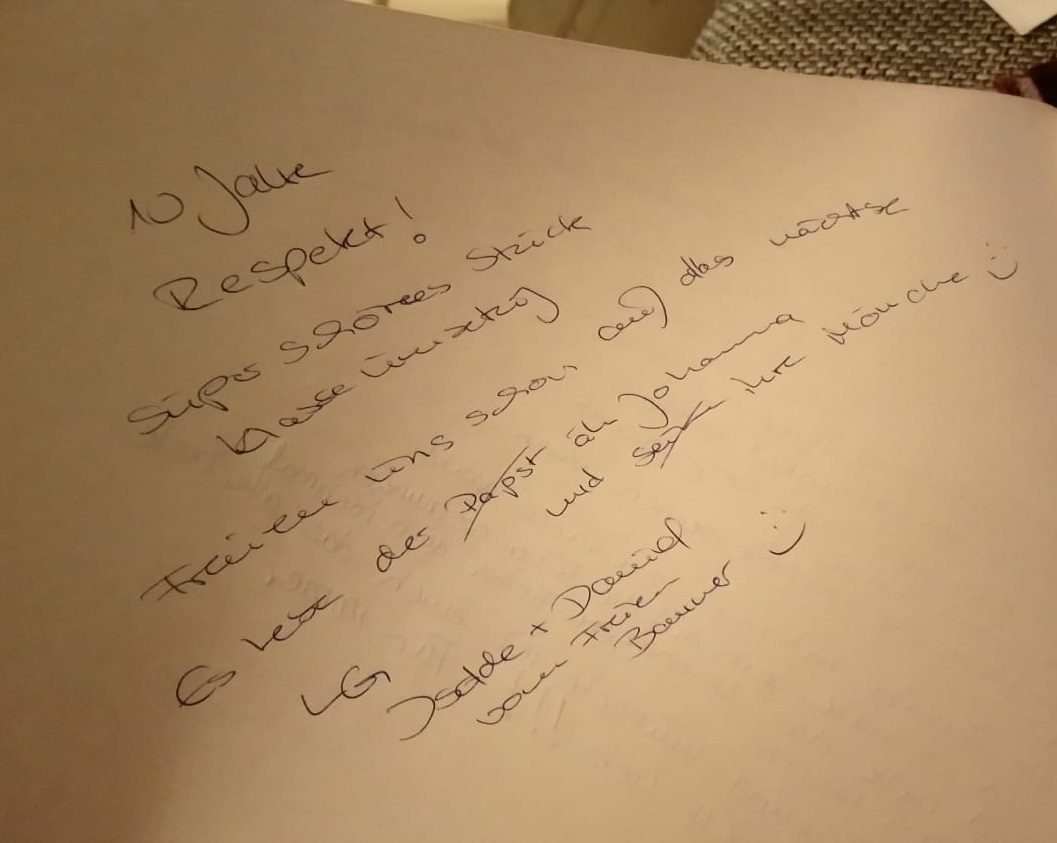 10 Jahre
Respekt!
Super schönes Stück
klasse
Freuen uns schon auf das nächste
Es lebe der Papst äh Johanna
und seine ihre Mönche :)
LG
Isolde + Daniel
vom Freien
Banner :)